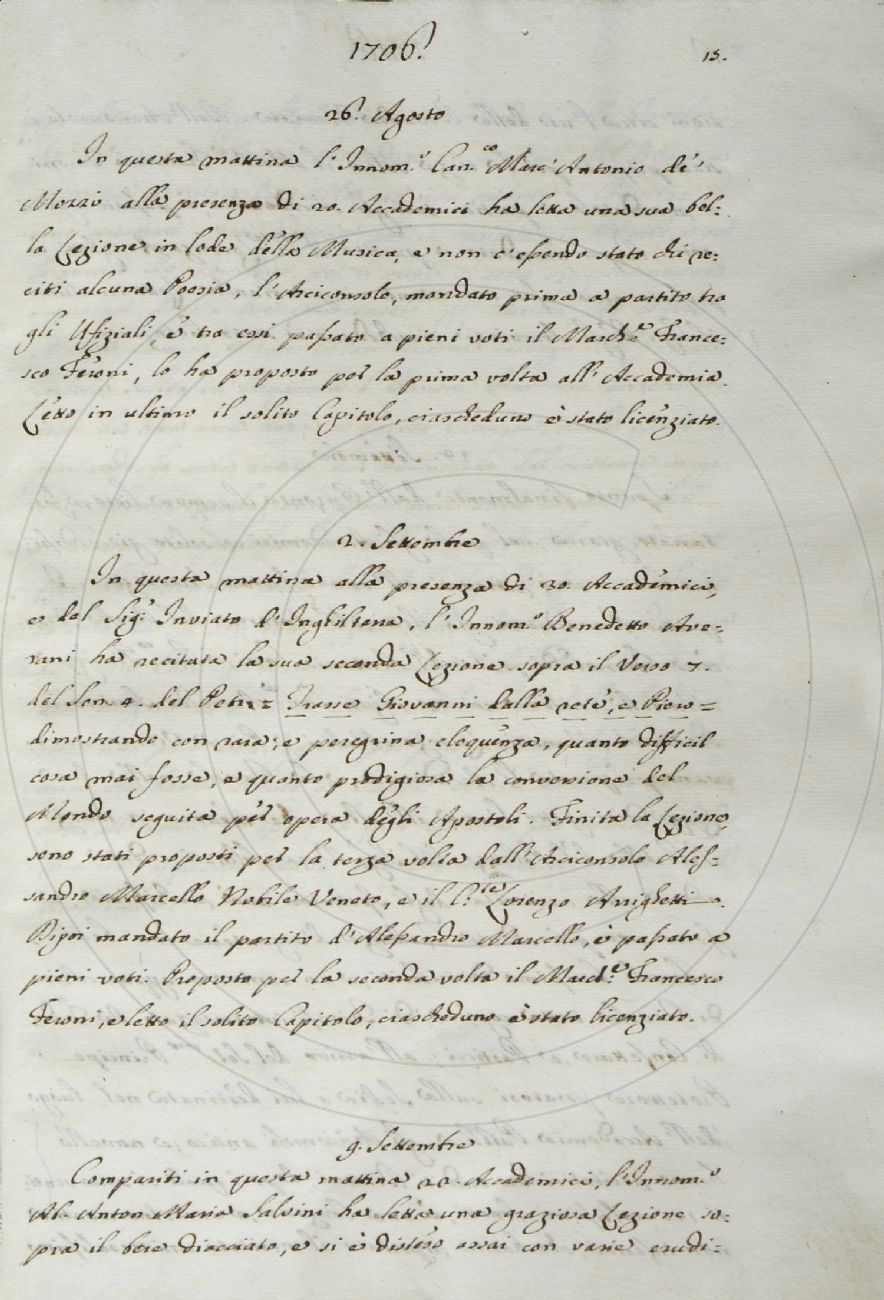 1706.
15.
26. Agosto
In questa mattina l'Innom.º Can.co Marc'Antonio de'
Mozzi alla presenza di 20. Accademici ha letta una sua bel-
la Lezione in lode della Musica, e non c'essendo stato chi re-
citi alcuna Poesia, l'Arciconsolo, mandato prima a partito tra
gli Ufiziali, e tra essi passato a pieni voti il March.e France-
sco Feroni, lo ha proposto per la prima volta all'Accademia.
Letto in ultimo il solito Capitolo, ciascheduno è stato licenziato.
2. Settembre
In questa mattina alla presenza di 30. Accademici,
e del Sig.r Inviato d'Inghilterra, l'Innom.º Benedetto Ave-
rani ha recitata la sua seconda Lezione sopra il Verso 7.
del Son. 4. del Petr.= Trasse Giovanni dalla rete, e Piero=
dimostrando con rara, e peregrina eloquenza, quanto difficil
cosa mai fosse, e quanto prodigiosa la conversione del
Mondo seguita per opera degli Apostoli. Finita la Lezione,
sono stati proposti per la terza volta dall'Arciconsolo Ales-
sandro Marcello Nobile Veneto, e il C.te Lorenzo Arrighetti.
Dipoi mandato il partito d'Alessandro Marcello, è passato a
pieni voti. Proposto per la seconda volta il March.e Francesco
Feroni, e letto il solito Capitolo, ciascheduno è stato licenziato.
9. Settembre
Compariti in questa mattina 22. Accademici, l'Innom.º
Ab. Anton Maria Salvini ha letta una graziosa Lezione so-
pra il bere diacciato, e si è disteso assai con varie erudi-